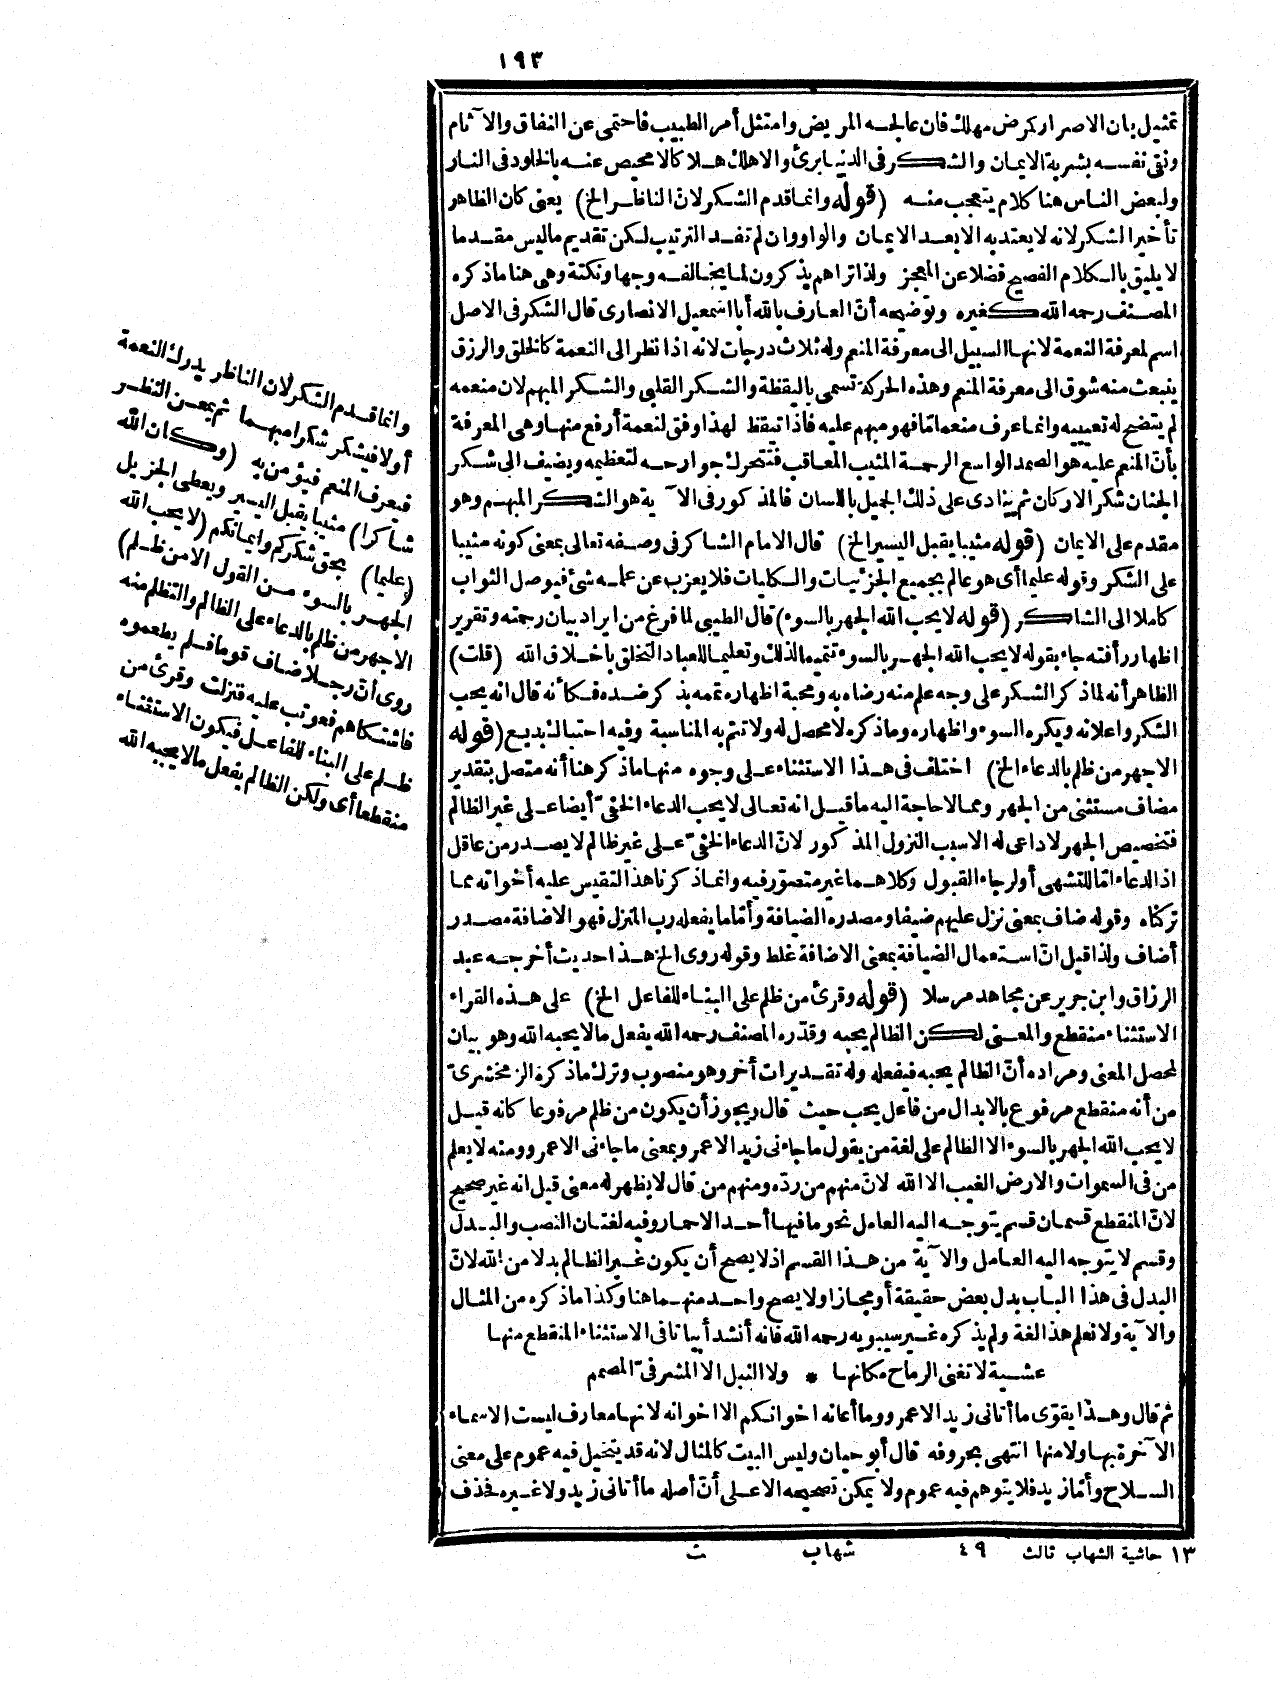 ١٩٣
تمثيل بان الاصرار كمرض مهلك فان عالجه المريض وامتثل أمر الطبيب فاحتمى عن النفاق والآثام
ونقى نفسه بشربة الايمان والشكر فى الدنيا برئ والا هلك هلاكا لا محيص عنه بالخلود فى النار
ولبعض الناس هنا كلام يتعجب منه (قوله وانما قدم الشكر لانّ الناظر الخ) يعنى كان الظاهر
تأخير الشكر لانه لا يعتد به الا بعد الايمان والواو وان لم تفد الترتيب لكن تقديم ما ليس مقدما
لا يليق بالكلام الفصيح فضلا عن المعجز ولذا تراهم يذكرون لما يخالفه وجها ونكتة وهى هنا ما ذكره
المصنف رحمه الله كغيره وتوضيحه أنّ العارف بالله أبا اسمعيل الانصارى قال الشكر فى الاصل
اسم لمعرفة النعمة لانها السبيل الى معرفة المنعم وله ثلاث درجات لانه اذا نظر الى النعمة كالخلق والرزق
ينبعث منه شوق الى معرفة المنعم وهذه الحركة تسمى باليقظة والشكر القلبى والشكر المبهم لان منعمه
لم يتضح له تعيينه وانما عرف منعما مّا فهو مبهم عليه فاذا تيقظ لهذا وفق لنعمة أرفع منها وهى المعرفة
بأنّ المنعم عليه هو الصمد الواسع الرحمة المثيب المعاقب فتتحرك جوارحه لتعظيمه ويضيف الى شكر
الجنان شكر الاركان ثم ينادى على ذلك الجميل باللسان فالمذكور فى الآية هو الشكر المبهم وهو
مقدم على الايمان (قوله مثيبا يقبل اليسير الخ) قال الامام الشاكر فى وصفه تعالى بمعنى كونه مثيبا
على الشكر وقوله عليما أى هو عالم بجميع الجزئيات والكليات فلا يعزب عن علمه شئ فيوصل الثواب
كاملا الى الشاكر (قوله لا يحب الله الجهر بالسوء) قال الطيبى لما فرغ من ايراد بيان رحمته وتقرير
اظهار رأفته جاء بقوله لا يحب الله الجهر بالسوء تتميما لذلك وتعليما للعباد التخلق باخلاق الله (قلت)
الظاهر أنه لما ذكر الشكر على وجه علم منه رضاه به ومحبة اظهاره تممه بذكر ضده فكأنه قال انه يحب
الشكر واعلانه ويكره السوء واظهاره وما ذكره لا محصل له ولا تتم به المناسبة وفيه احتباك بديع (قوله
الا جهر من ظلم بالدعاء الخ) اختلف فى هذا الاستثناء على وجوه منها ما ذكر هنا أنه متصل بتقدير
مضاف مستثنى من الجهر ومما لا حاجة اليه ما قيل انه تعالى لا يحب الدعاء الخفىّ أيضا على غير الظالم
فتخصيص الجهر لا داعى له الا سبب النزول المذكور لانّ الدعاء الخفىّ على غير ظالم لا يصدر من عاقل
اذ الدعاء امّا للتشهى أو لرجاء القبول وكلاهما غير متصوّر فيه وانما ذكرنا هذا لتقيس عليه أخواته مما
تركناه وقوله ضاف بمعنى نزل عليهم ضيفا ومصدره الضيافة وأمّا ما يفعله رب المنزل فهو الاضافة مصدر
أضاف ولذا قيل انّ استعمال الضيافة بمعنى الاضافة غلط وقوله روى الخ هذا حديث أخرجه عبد
الرزاق وابن جرير عن مجاهد مرسلا (قوله وقرئ من ظلم على البناء للفاعل الخ) على هذه القراءة
الاستثناء منقطع والمعنى لكن الظالم يحبه وقدّره المصنف رحمه الله يفعل ما لا يحبه الله وهو بيان
لمحصل المعنى ومراده أنّ الظالم يحبه فيفعله وله تقديرات أخر وهو منصوب وترك ما ذكره الزمخشرىّ
من أنه منقطع مرفوع بالابدال من فاعل يحب حيث قال ويجوز أن يكون من ظلم مرفوعا كانه قيل
لا يحب الله الجهر بالسوء الا الظالم على لغة من يقول ما جاءنى زيد الا عمرو بمعنى ما جاءنى الا عمرو ومنه لا يعلم
من فى السموات والارض الغيب الا الله لانّ منهم من ردّه ومنهم من قال لا يظهر له معنى قيل انه غير صحيح
لانّ المنقطع قسمان قسم يتوجه اليه العامل نحو ما فيها أحد الا حمار وفيه لغتان النصب والبدل
وقسم لا يتوجه اليه العامل والآية من هذا القسم اذ لا يصح أن يكون غير الظالم بدلا من الله لانّ
البدل فى هذا الباب بدل بعض حقيقة أو مجازا ولا يصح واحد منهما هنا وكذا ما ذكره من المثال
والآية ولا نعلم هذا لغة ولم يذكره غير سيبويه رحمه الله فانه أنشد أبياتا فى الاستثناء المنقطع منها
عشية لا تغنى الرماح مكانها * ولا النبل الا المشرفىّ المصمم
ثم قال وهذا يقوّى ما أتانى زيد الا عمرو وما أعانه اخوانكم الا اخوانه لانها معارف ليست الاسماء
الآخرة بها ولا منها انتهى بحروفه قال أبو حيان وليس البيت كالمثال لانه قد يتخيل فيه عموم على معنى
السلاح وأمّا زيد فلا يتوهم فيه عموم ولا يمكن تصحيحه الا على أنّ أصله ما أتانى زيد ولا غيره فحذف
١٣ حاشية الشهاب ثالث ٤٩ شهاب ث
وانما قدم الشكر لان الناظر يدرك النعمة
أولا فيشكر شكرا مبهما ثم يمعن النظر
فيعرف المنعم فيؤمن به (وكان الله
شاكرا) مثيبا يقبل اليسير ويعطى الجزيل
(عليما) بحق شكركم وايمانكم (لا يحب الله
الجهر بالسوء من القول الا من ظلم)
الا جهر من ظلم بالدعاء على الظالم والتظلم منه
روى أنّ رجلا ضاف قوما فلم يطعموه
فاشتكاهم فعوتب عليه فنزلت وقرئ من
ظلم على البناء للفاعل فيكون الاستثناء
منقطعا أى ولكن الظالم يفعل ما لا يحبه الله